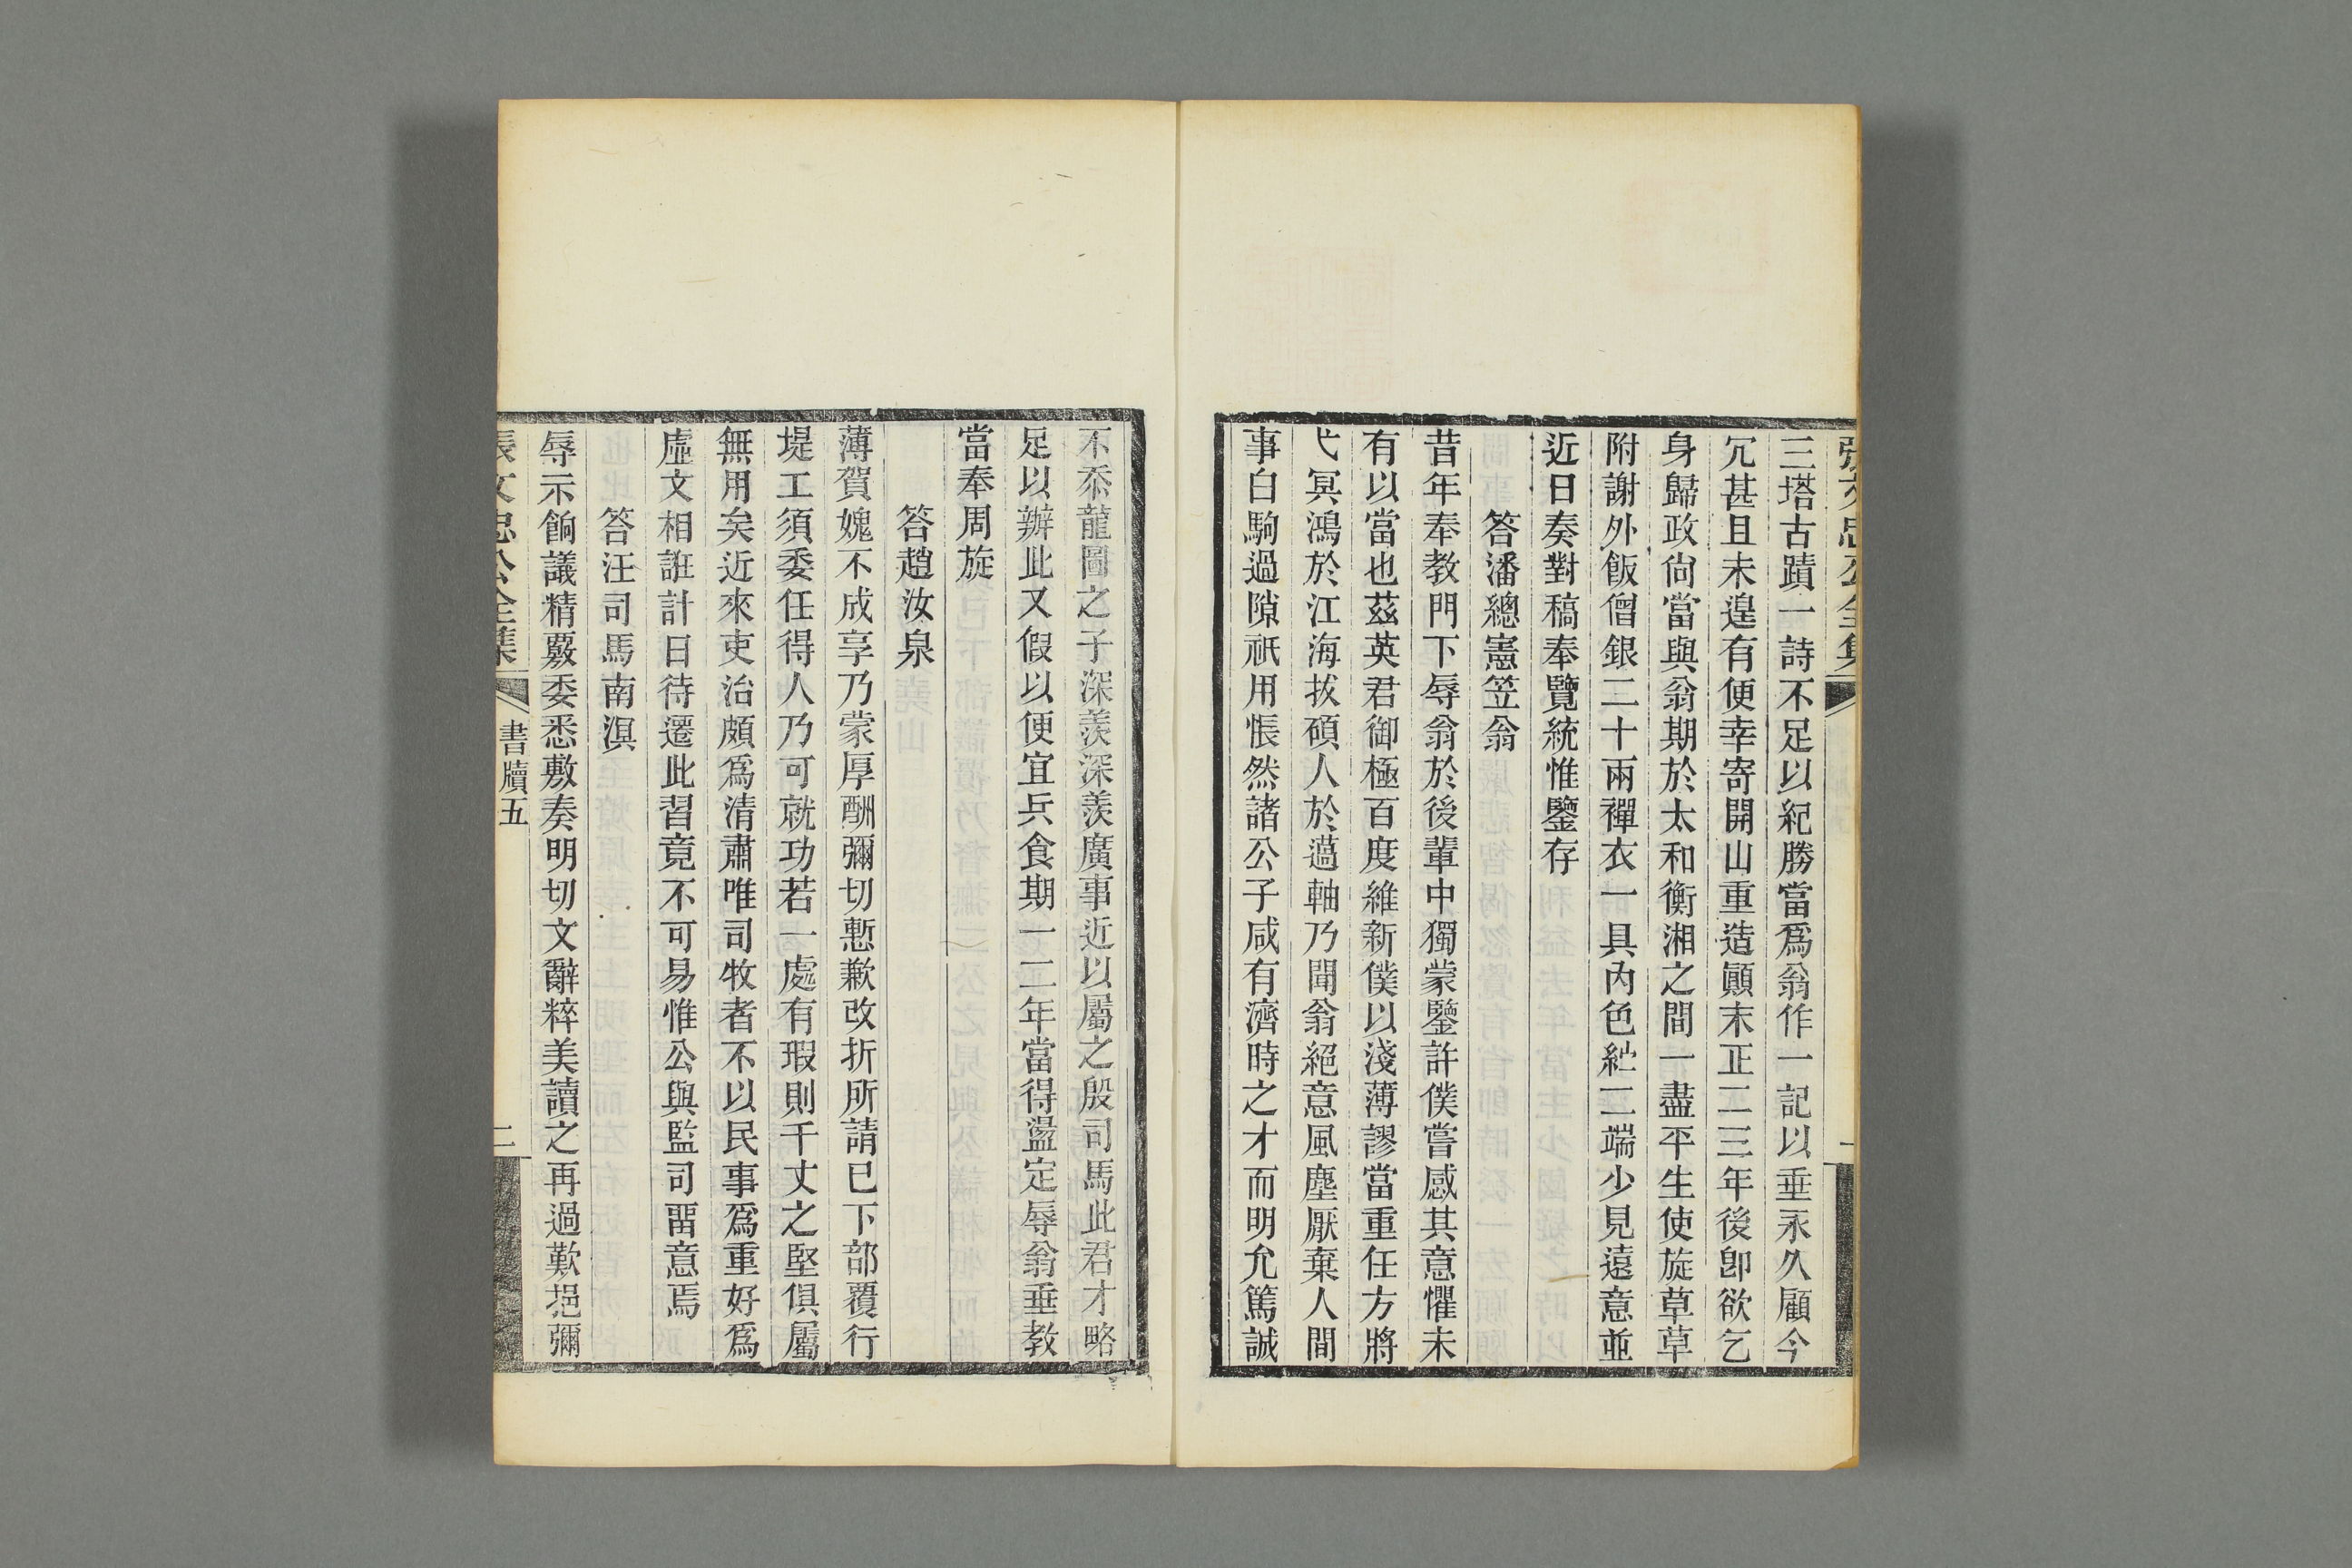 張文忠公全集
三塔古蹟一詩不足以紀勝當爲翁作一記以垂永久顧今
冗甚且未遑有便幸寄開山重造顚末正二三年後卽欲乞
身歸政尙當與翁期於太和衡湘之間一盡平生使旋草草
附謝外飯僧銀二十兩禪衣一具內色紵二端少見遠意並
近日奏對稿奉覽統惟鑒存
答潘總憲笠翁
昔年奉教門下辱翁於後輩中獨蒙鑒許僕嘗感其意懼未
有以當也茲英君御極百度維新僕以淺薄謬當重任方將
弋冥鴻於江海拔碩人於薖軸乃聞翁絕意風塵厭棄人間
事白駒過隙祇用悵然諸公子咸有濟時之才而明允篤誠
不忝龍圖之子深羨深羨廣事近以屬之殷司馬此君才略
足以辦此又假以便宜兵食期一二年當得盪定辱翁垂教
當奉周旋
答趙汝泉
薄賀媿不成享乃蒙厚酬彌切慙歉改折所請已下部覆行
堤工須委任得人乃可就功若一處有瑕則千丈之堅俱屬
無用矣近來吏治頗爲清肅唯司牧者不以民事爲重好爲
虛文相誑計日待遷此習竟不可易惟公與監司畱意焉
答汪司馬南溟
辱示餉議精覈委悉敷奏明切文辭粹美讀之再過歎挹彌
張文忠公全集
書牘五
二